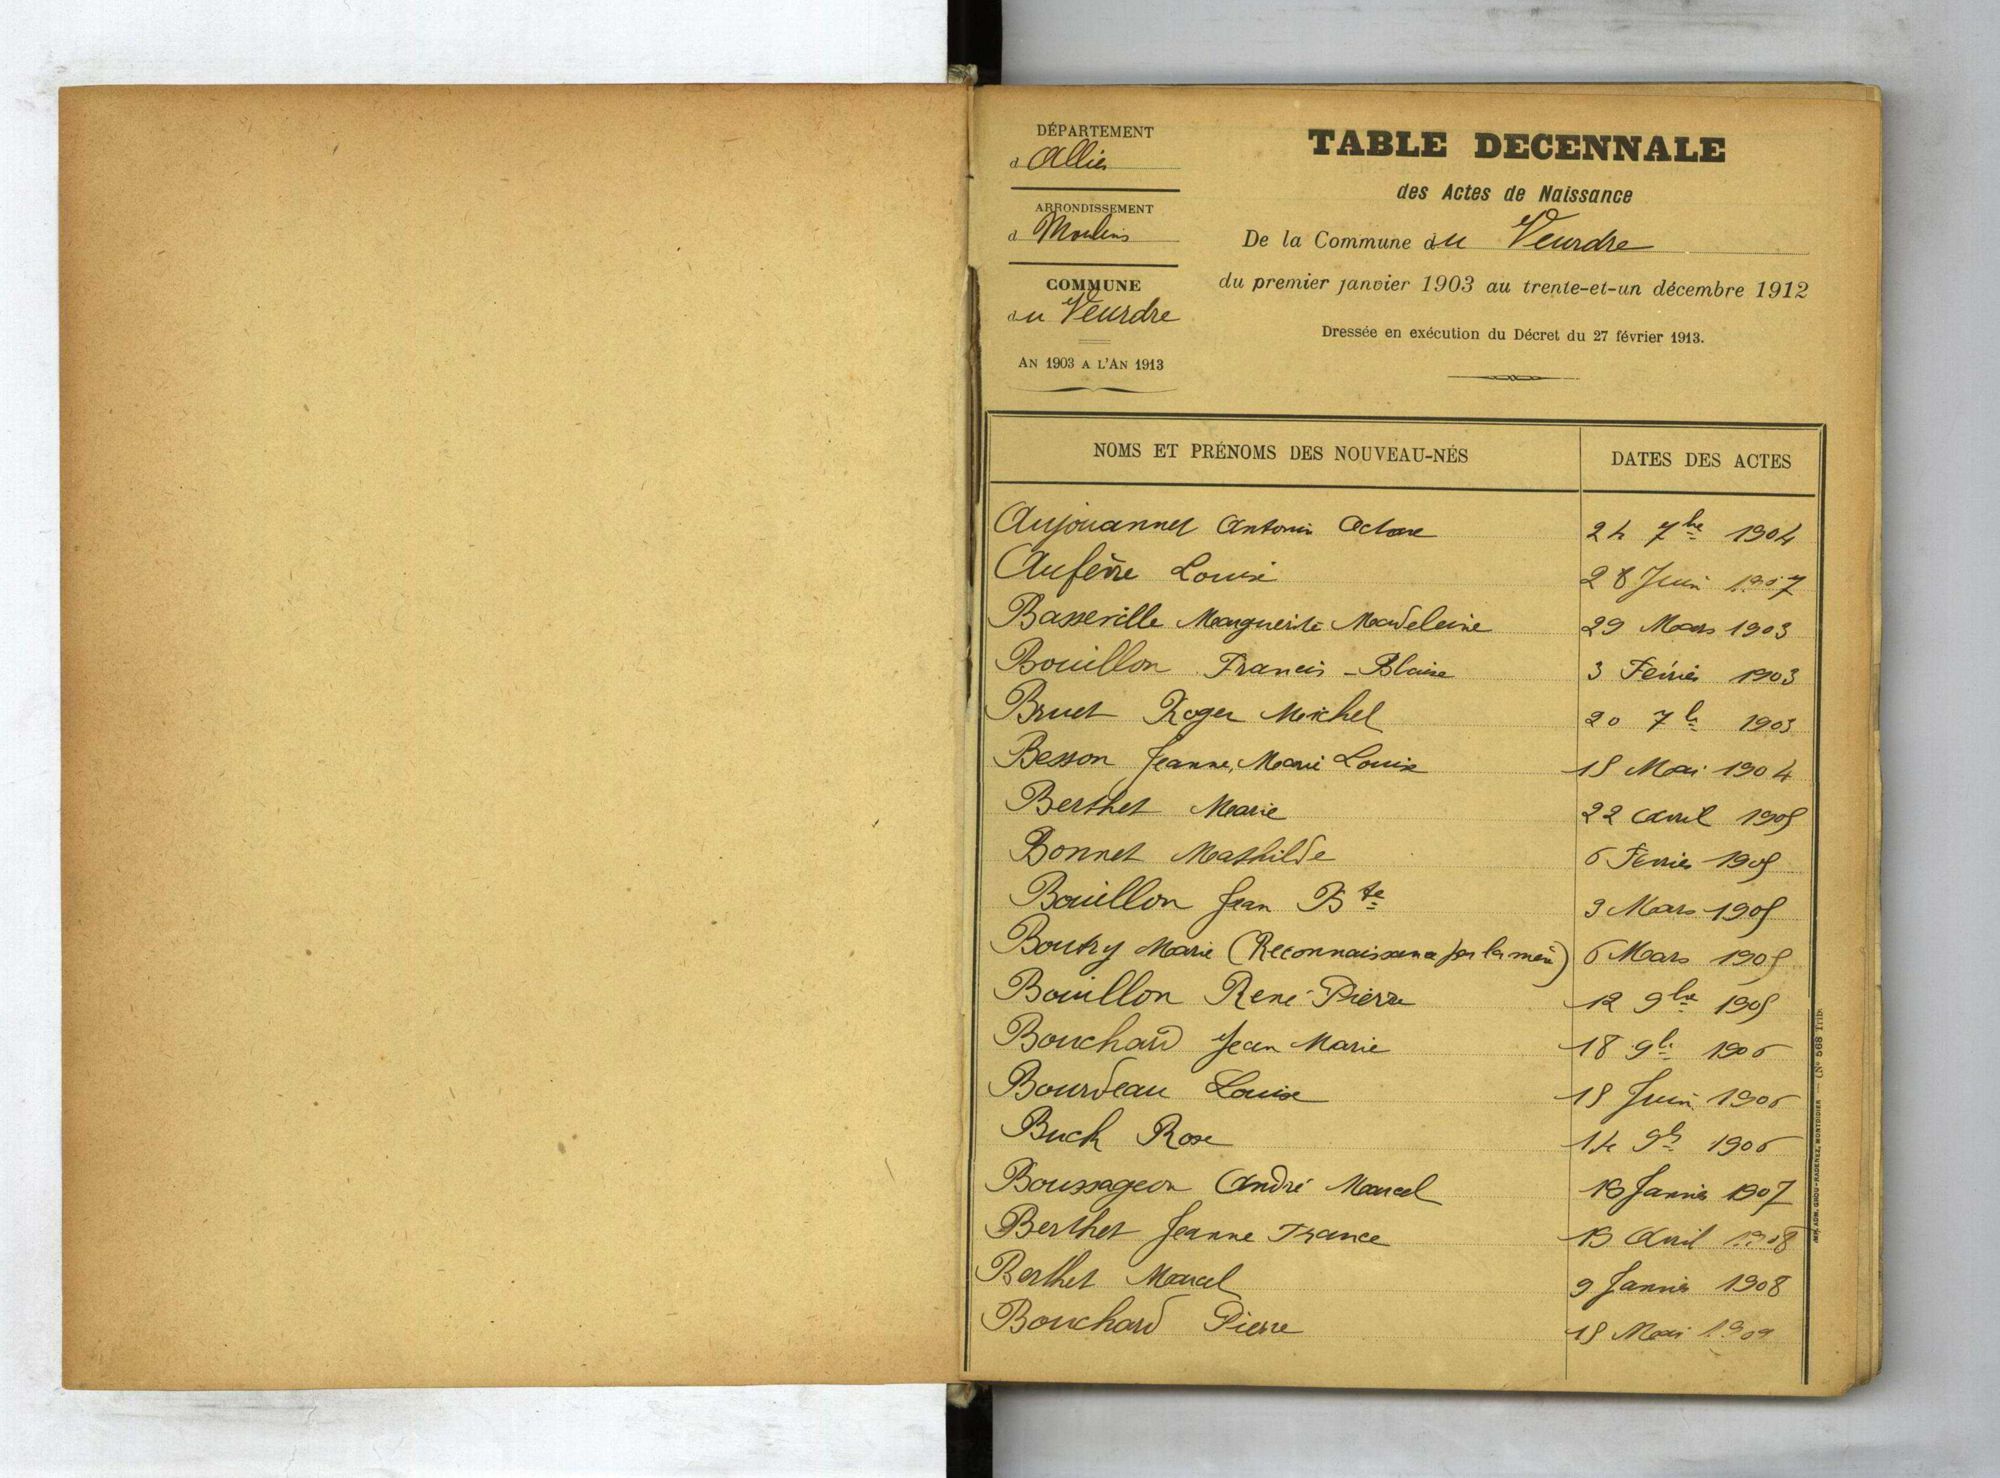 DÉPARTEMENT
d Allier
ARRONDISSEMENT
d Moulins
COMMUNE
du Veurdre
AN 1903 A L'AN 1913
TABLE DECENNALE
des Actes de Naissance
De la Commune du Veurdre
du premier janvier 1903 au trente-et-un décembre 1912
Dressée en exécution du Décret du 27 février 1913.
NOMS ET PRÉNOMS DES NOUVEAU-NÉS DATES DES ACTES
Aujouannet Antonin Octave 24 7bre 1904
Aufèvre Louise 28 Juin 1907
Basseville Marguerite Madeleine 29 Mars 1903
Bouillon Francis-Blaise 3 Février 1903
Bruet Roger Michel 20 7b 1903
Besson Jeanne, Marie Louise 15 Mai 1904
Berthet Marie 22 avril 1905
Bonnet Mathilde 6 Février 1905
Bouillon Jean Bte 3 Mars 1905
Boutry Marie (Reconnaissance par la mère) 6 Mars 1905
Bouillon René Pierre 12 9bre 1905
Bouchard Jean Marie 18 9b 1906
Bourdeau Louise 15 Juin 1906
Buch Rose 14 9b 1906
Boussageon André Marcel Janvier 1907
Berthet Jeanne France Avril 1908
Berthet Marcel 9 Janvier 1908
Bouchard Pierre 15 Mai 1909
IMP. ADM. GROU-RADENEZ, MONTDIDIER — (N° 568 Trib.